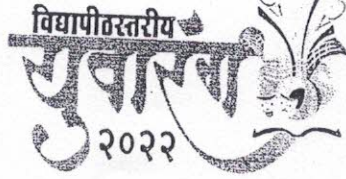 विद्यापीठस्तरीय
युवारंग
२०२२